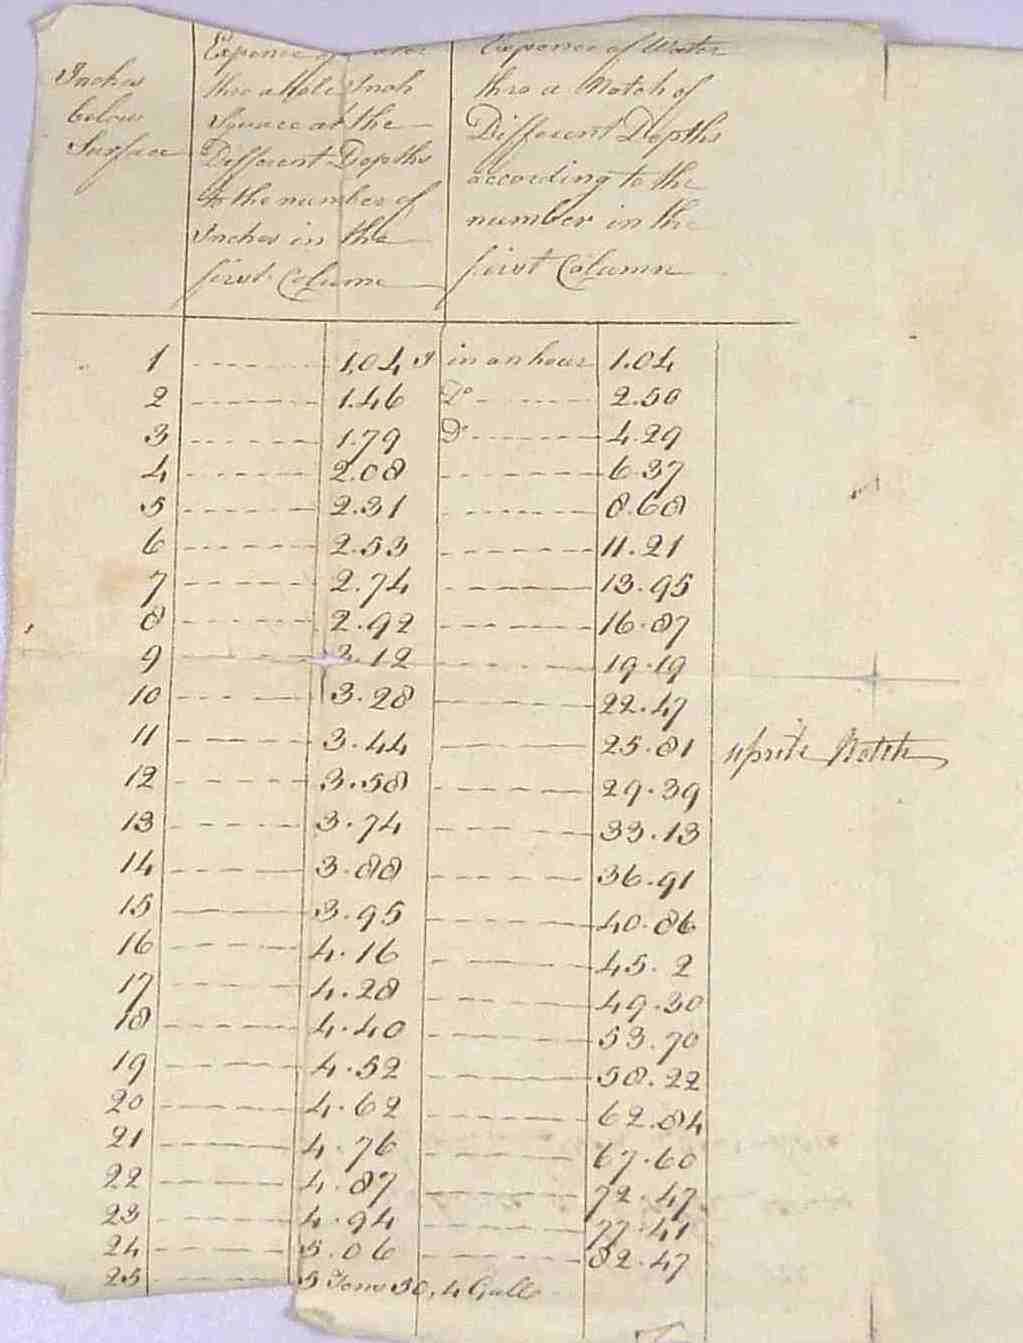 Inches
below
Surface
Expence of Water
thro a hole 1 Inch
Square at the
Different Depths
to the number of
Inches in the
first Column
Expence of Water
thro a Notch of
Different Depths
according to the
number in the
first Column
1 1.04 in an hour 1.04
2 1.46 Do 2.50
3 1.79 Do 4.29
4 2.08 6.37
5 2.31 8.68
6 2.53 11.21
7 2.74 13.95
8 2.92 16.87
9 3.12 19.19
10 3.28 22.47
11 3.44 25.81 uprite Notch
12 3.58 29.39
13 3.74 33.13
14 3.88 36.91
15 3.95 40.86
16 4.16 45.2
17 4.28 49.30
18 4.40 53.70
19 4.52 58.22
20 4.62 62.84
21 4.76 67.60
22 4.87 72.47
23 4.94 77.41
24 5.06 82.47
25 5 Tons 50,4 Galls